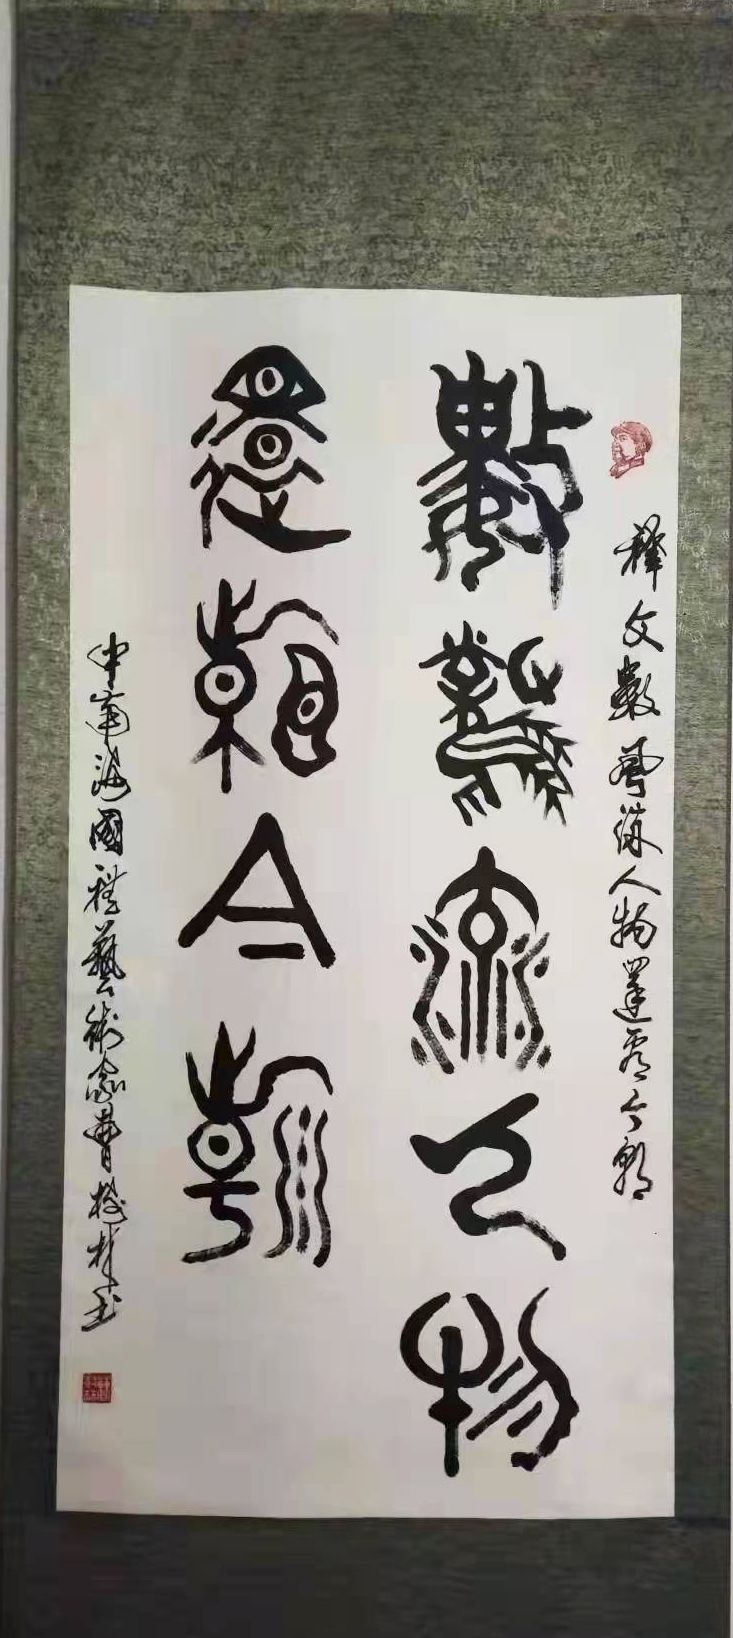 釋文數風流人物還看今朝
數風流人物
還看今朝
中南海國禮藝術家曹林书